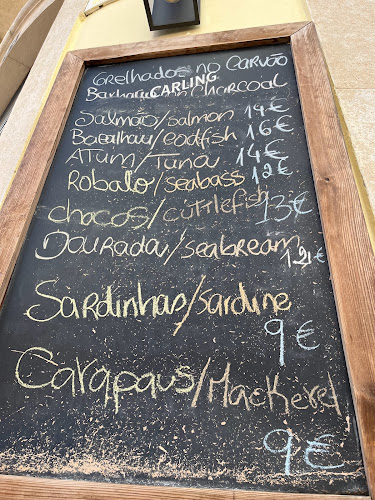 Grelhados no Carvão
CARLING
Charcoal
Salmão/salmon 14€
Bacalhau/codfish 16€
Atum/Tuna 14€
Robalo/seabass 12€
chocos/cuttlefish 13€
Dourada/seabream 12€
Sardinhas/sardine
9€
Carapaus/Mackerel
9€